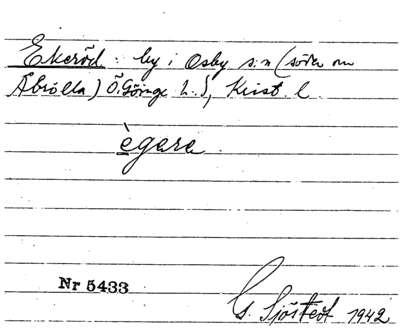 Ekeröd : by i Osby s:n (söder om
Åbrolla) Ö. Göinge h.d, Krist. l.
ègara.
Nr 5433
G. Sjöstedt 1942